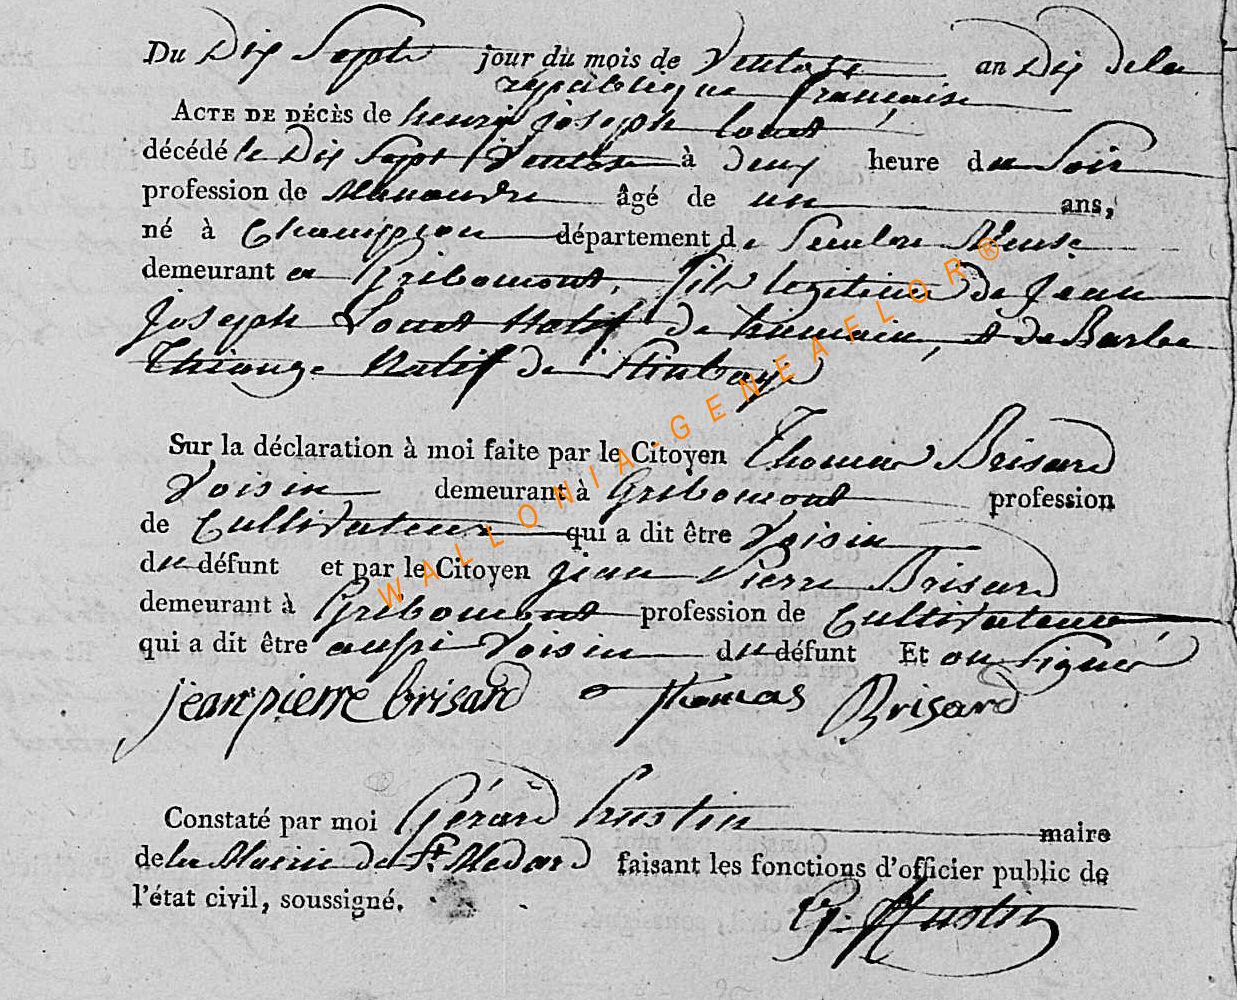 Du Dix Sept jour du mois de Ventose an Dix de la
république française
ACTE DE DÉCÈS de henry joseph louet
décédé le Dix Sept Ventose à deux heure du Soir
profession de âgé de un ans,
né à Champion département de Sambre Meuse
demeurant a Gribomont, fils legitime de Jean
Joseph Louet Natif de humain, et de Barbe
Thirouge Natif de
Sur la déclaration à moi faite par le Citoyen Thomas Brisard
Voisin demeurant à Gribomont profession
de Cultivateur qui a dit être Voisin
du défunt et par le Citoyen jean Pierre Brisard
demeurant à Gribomont profession de Cultivateur,
qui a dit être aussi Voisin du défunt Et on Signé
jean pierre brisard thomas Brisard
Constaté par moi Gérard hustin maire
de la Mairie de St. Medard faisant les fonctions d'officier public de
l'état civil, soussigné.
G. Hustin
WALLONIA-GENEAFLOR®